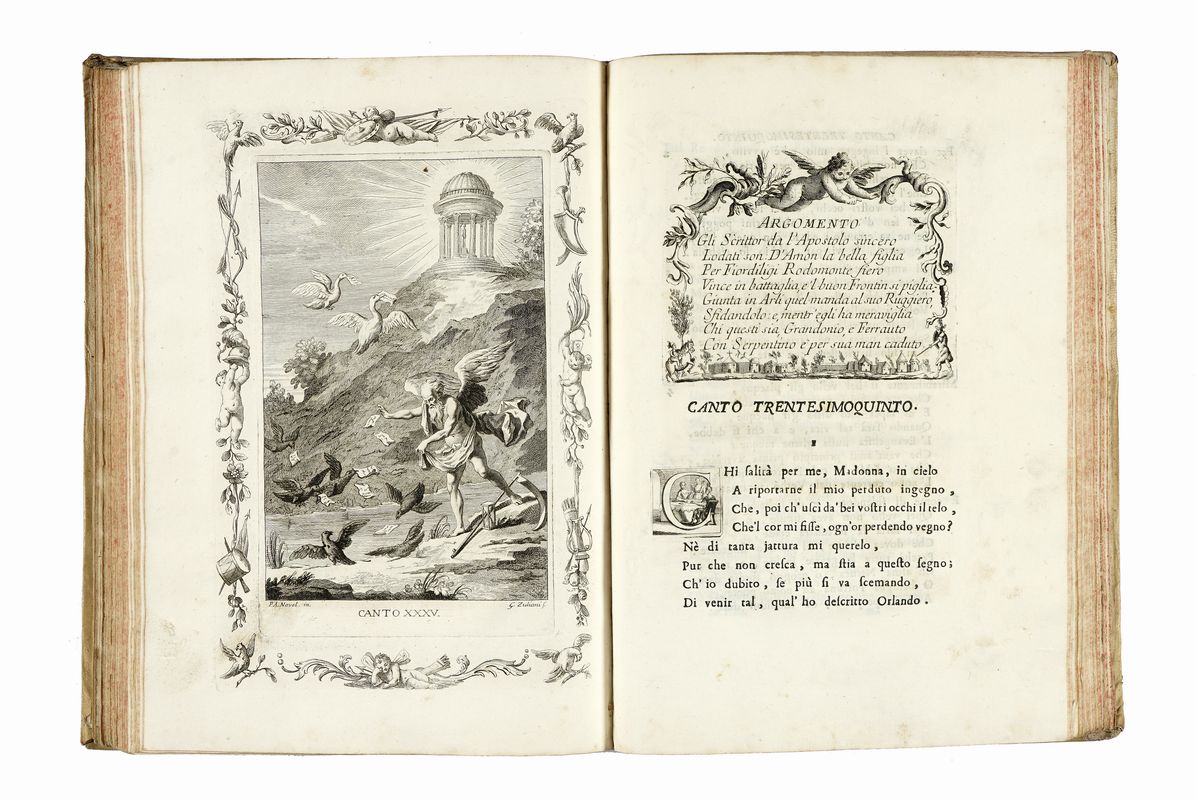 P.A. Novel. in.
G. Zuliani s.
CANTO XXXV.
ARGOMENTO
Gli Scrittor da l'Apostolo sincero
Lodati son. D'Amon la bella figlia
Per Fiordiligi Rodomonte fiero
Vince in battaglia, e 'l buon Frontin si piglia:
Giunta in Arli quel manda al suo Ruggiero,
Sfidandolo: e, mentr'egli ha meraviglia
Chi questi sia, Grandonio, e Ferrauto
Con Serpentino è per sua man caduto.
CANTO TRENTESIMOQUINTO.
I
CHi salirà per me, Madonna, in cielo
A riportarne il mio perduto ingegno,
Che, poi ch'uscì da'bei vostri occhi il telo,
Che'l cor mi fisse, ogn'or perdendo vegno?
Nè di tanta jattura mi querelo,
Pur che non cresca, ma stia a questo segno;
Ch'io dubito, se più si va scemando,
Di venir tal, qual'ho descritto Orlando.